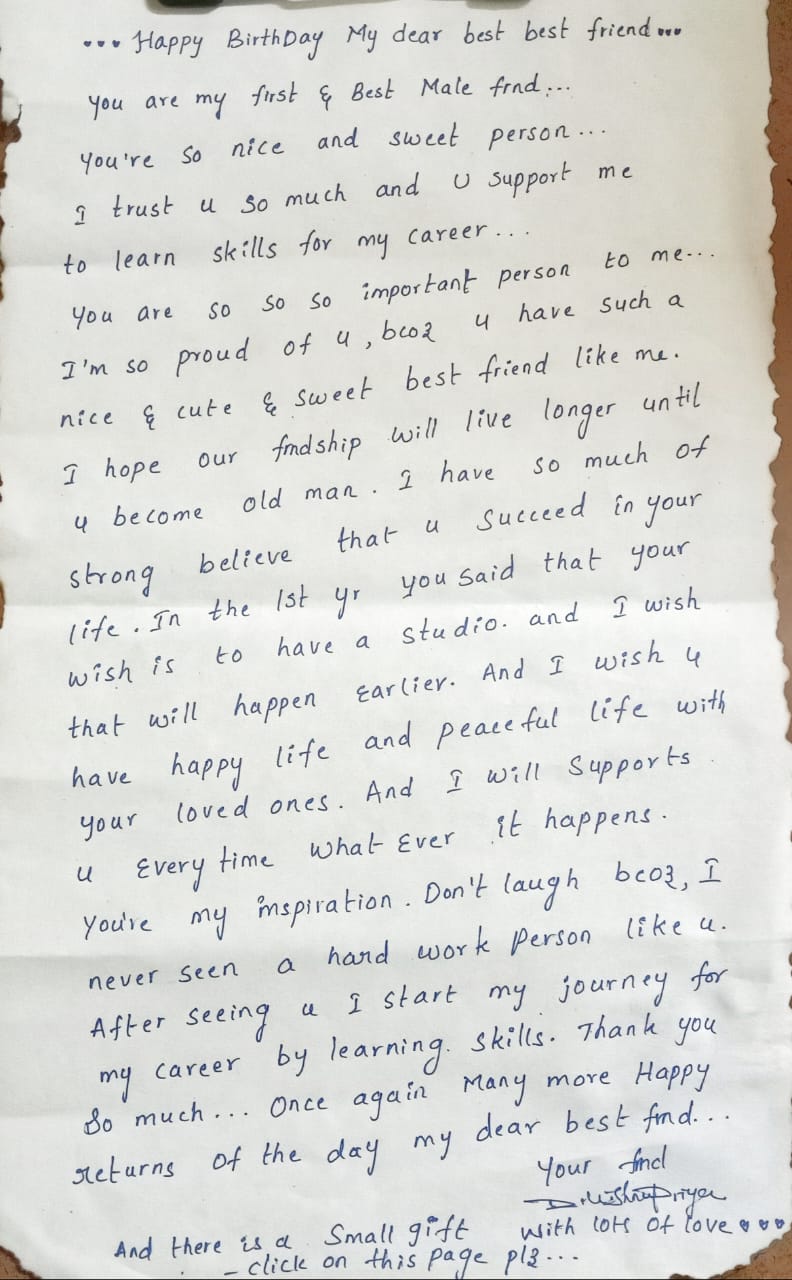 ... Happy BirthDay My dear best best friend ...
you are my first & Best Male frnd...
you're so nice and sweet person...
I trust u so much and U support me
to learn skills for my career...
you are so so so important person to me...
I'm so proud of u, bcoz u have such a
nice & cute & sweet best friend like me.
I hope our frndship will live longer until
u become old man. I have so much of
strong believe that u succeed in your
life. In the 1st yr you said that your
wish is to have a studio. and I wish
that will happen Earlier. And I wish u
have happy life and peaceful life with
your loved ones. And I will Supports
u Every time what Ever it happens.
You're my inspiration. Don't laugh bcoz, I
never seen a hard work person like u.
After seeing u I start my journey for
my career by learning. skills. Thank you
So much... Once again Many more Happy
returns of the day my dear best frnd...
Your frnd
And there is a Small gift with lots of love ...
- click on this page plz...